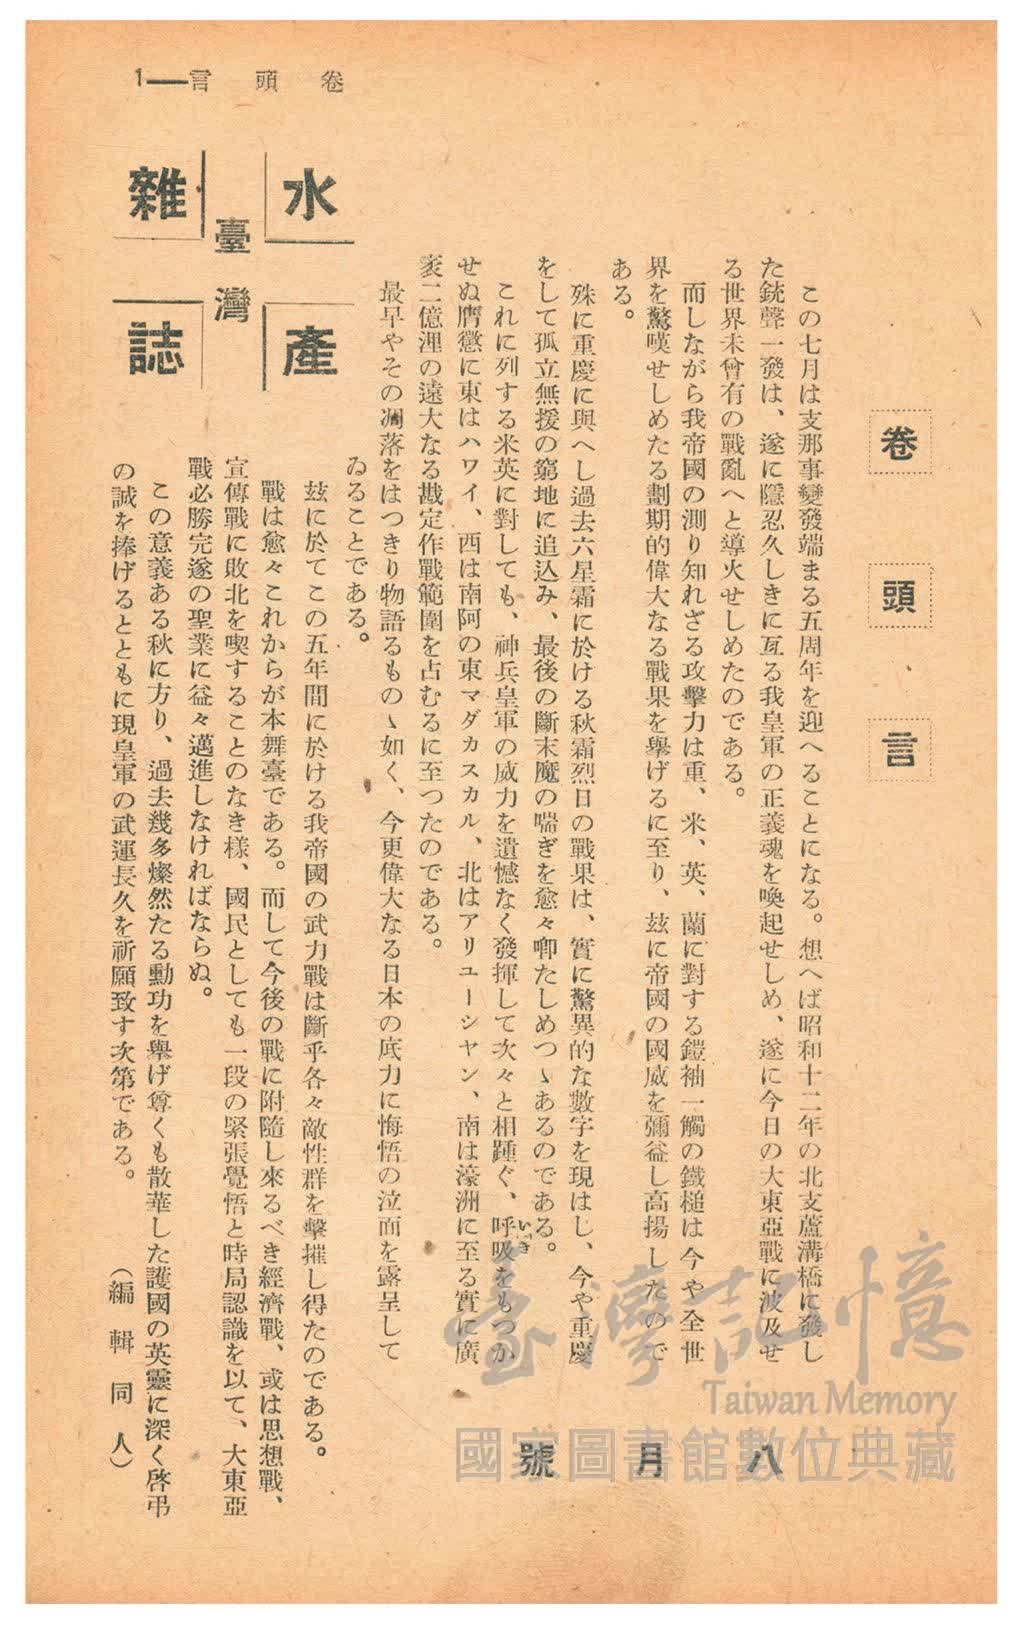 卷頭言——1
臺灣
水產
雜誌
卷頭言
この七月は支那事變發端まる五周年を迎へることになる。想へば昭和十二年の北支蘆溝橋に發し
た銃聲一發は、遂に隱忍久しきに亙る我皇軍の正義魂を喚起せしめ、遂に今日の大東亞戰に波及せ
る世界未曾有の戰亂へと導火せしめたのである。
而しながら我帝國の測り知れざる攻擊力は重、米、英、蘭に對する鎧袖一觸の鐵槌は今や全世
界を驚嘆せしめたる劃期的偉大なる戰果を擧げるに至り、玆に帝國の國威を彌益し高揚したので
ある。
殊に重慶に與へし過去六星霜に於ける秋霜烈日の戰果は、實に驚異的な數字を現はし、今や重慶
をして孤立無援の窮地に追込み、最後の斷末魔の喘ぎを愈々啣たしめつゝあるのである。
これに列する米英に對しても、神兵皇軍の威力を遺憾なく發揮して次々と相踵ぐ、呼吸をもつか
いつき
せぬ膺懲に東はハワイ、西は南阿の東マダカスカル、北はアリユーシヤン、南は濠洲に至る實に廣
袤二億浬の遠大なる戡定作戰範圍を占むるに至つたのである。
最早やその凋落をはつきり物語るものゝ如く、今更偉大なる日本の底力に悔悟の泣面を露呈して
ゐることである。
玆に於てこの五年間に於ける我帝國の武力戰は斷乎各々敵性群を擊摧し得たのである。
戰は愈々これからが本舞臺である。而して今後の戰に附隨し來るべき經濟戰、或は思想戰、
宣傳戰に敗北を喫することのなき樣、國民としても一段の緊張覺悟と時局認識を以て、大東亞
戰必勝完遂の聖業に益々邁進しなければならぬ。
この意義ある秋に方り、過去幾多燦然たる勳功を擧げ尊くも散華した護國の英靈に深く啓弔
の誠を捧げるとともに現皇軍の武運長久を祈願致す次第である。（編輯同人）
八月號
臺灣記憶
Taiwan Memory
國家圖書館數位典藏